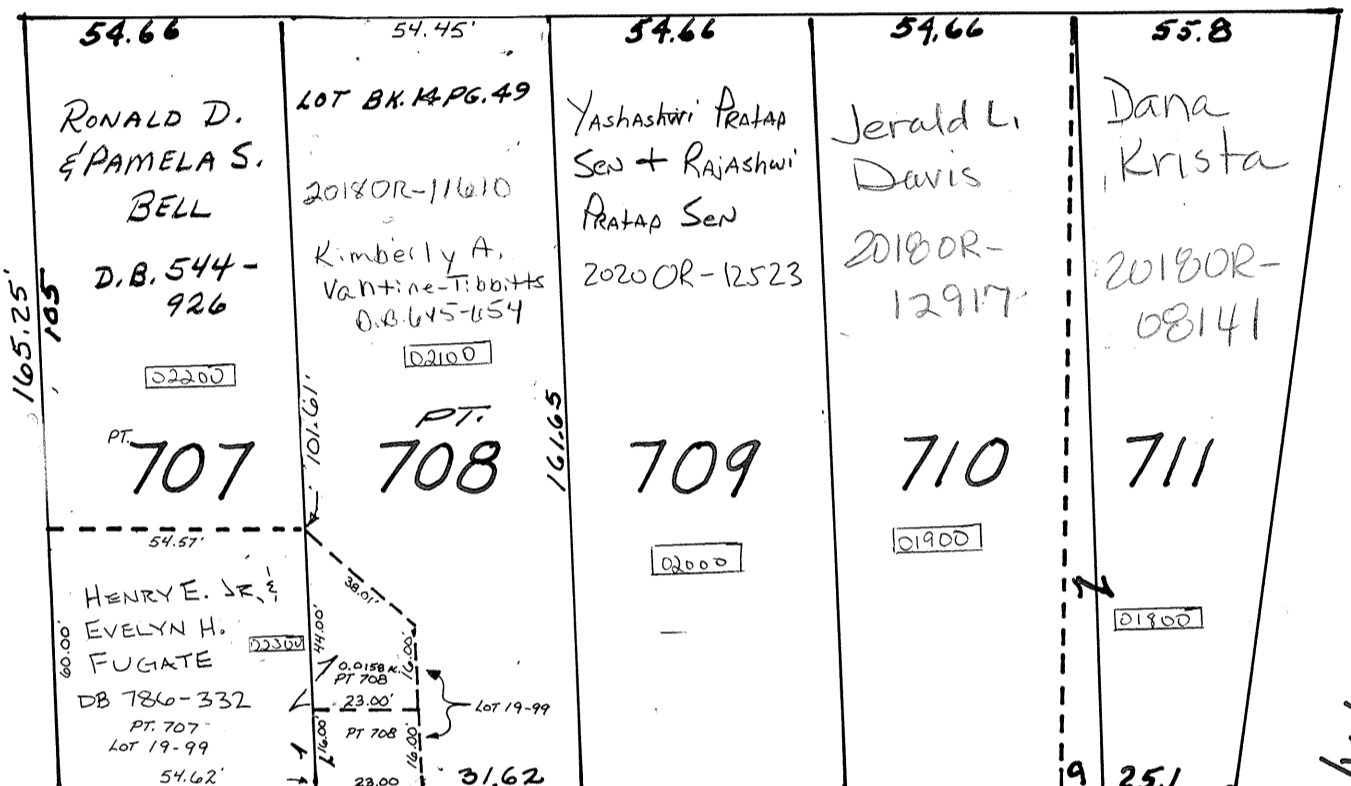 54.66
RONALD D.
& PAMELA S.
BELL
D.B. 544-
926
02200
165.25'
105
PT.
707
54.57'
HENRY E. JR. &
EVELYN H.
FUGATE
02300
DB 786-332
PT. 707
LOT 19-99
54.62'
60.00'
54.45'
LOT BK. 14 PG. 49
2018OR-11610
Kimberly A.
Vantine-Tibbitts
D.B. 645-654
02100
PT.
708
101.61'
38.01'
44.00'
16.00'
PT 708
23.00'
LOT 19-99
16.00'
PT 708
16.00'
23.00
31.62
161.65
54.66
Yashashwi Pratap
Sen + Rajashwi
Pratap Sen
2020OR-12523
709
02000
54.66
Jerald L.
Davis
2018OR-
12917
710
01900
55.8
Dana
Krista
2018OR-
08141
711
01800
9
25.1